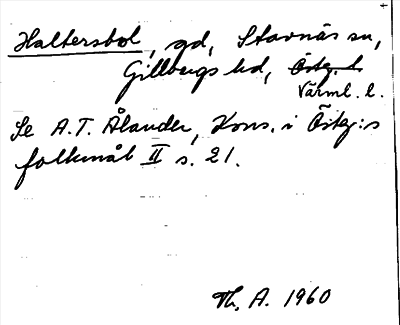 Haltersbol, gd, Stavnäs sn,
Gillbergs hd, Östg. l.
Värml. l.
Se A.T. Ålander, Kons. i Östg:s
folkmål II s. 21.
Th. A. 1960